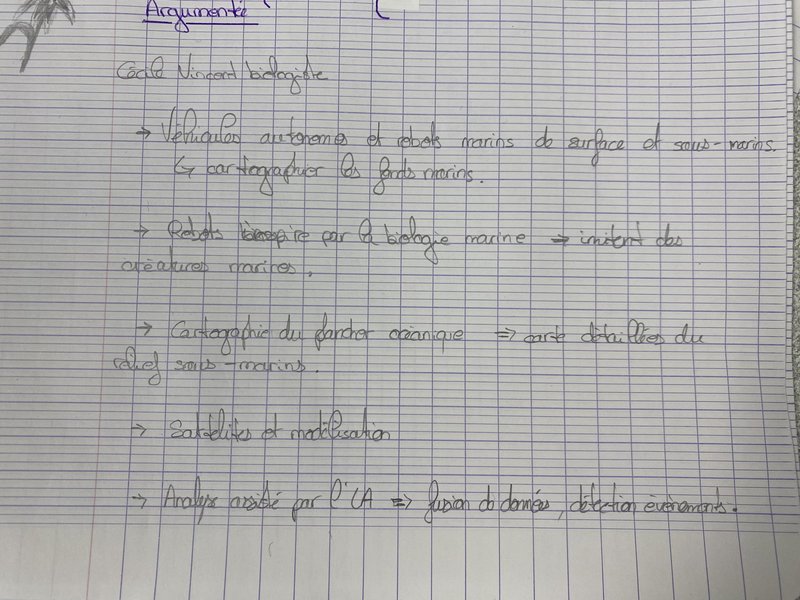 Argumenté
Cécile Vincent biologiste
→ Véhicules autonomes et robots marins de surface et sous-marins.
↳ cartographier les fonds marins.
→ Robots inspiré par la biologie marine → imitent des
créatures marines.
→ Cartographie du plancher océanique ⇒ carte détaillées du
relief sous-marins.
→ Satellites et modélisation
→ Analyse assisté par l'IA ⇒ fusion de données, détection évènements.